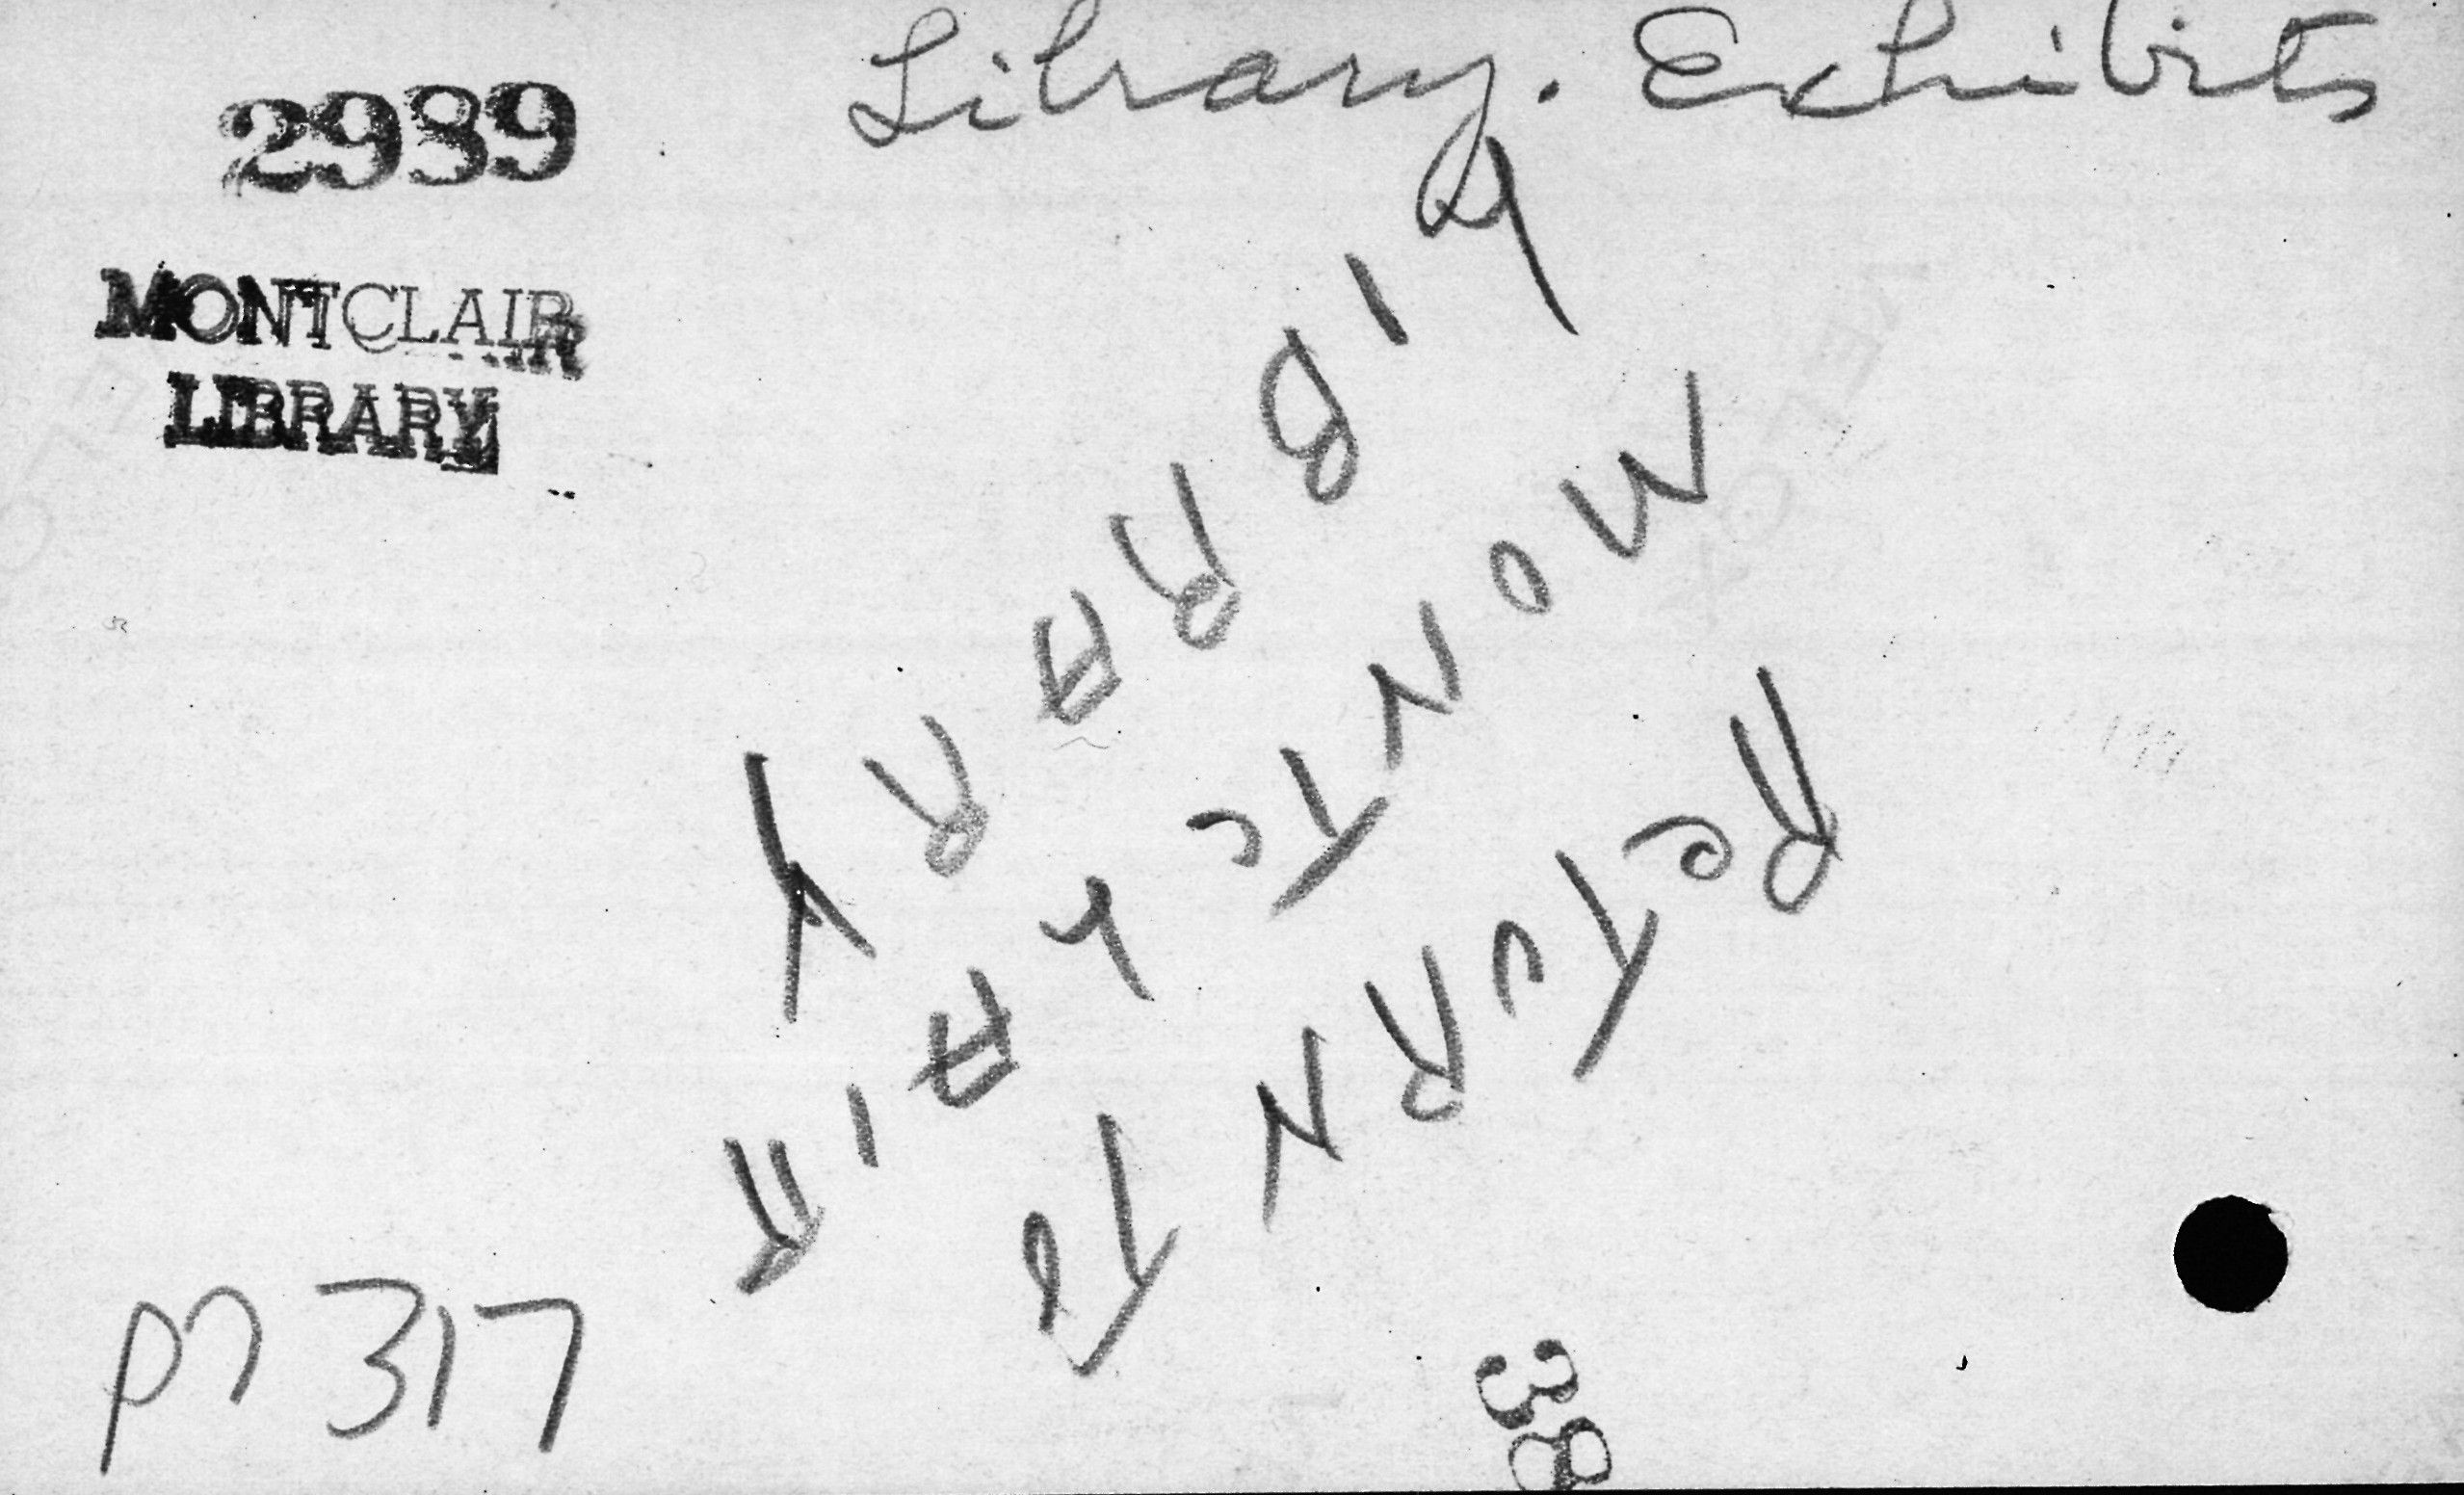 Library. Exhibits
2989
MONTCLAIR
LIBRARY
ReTuRN To
MoNTcLAIR
LIBRARY
pm 317
38